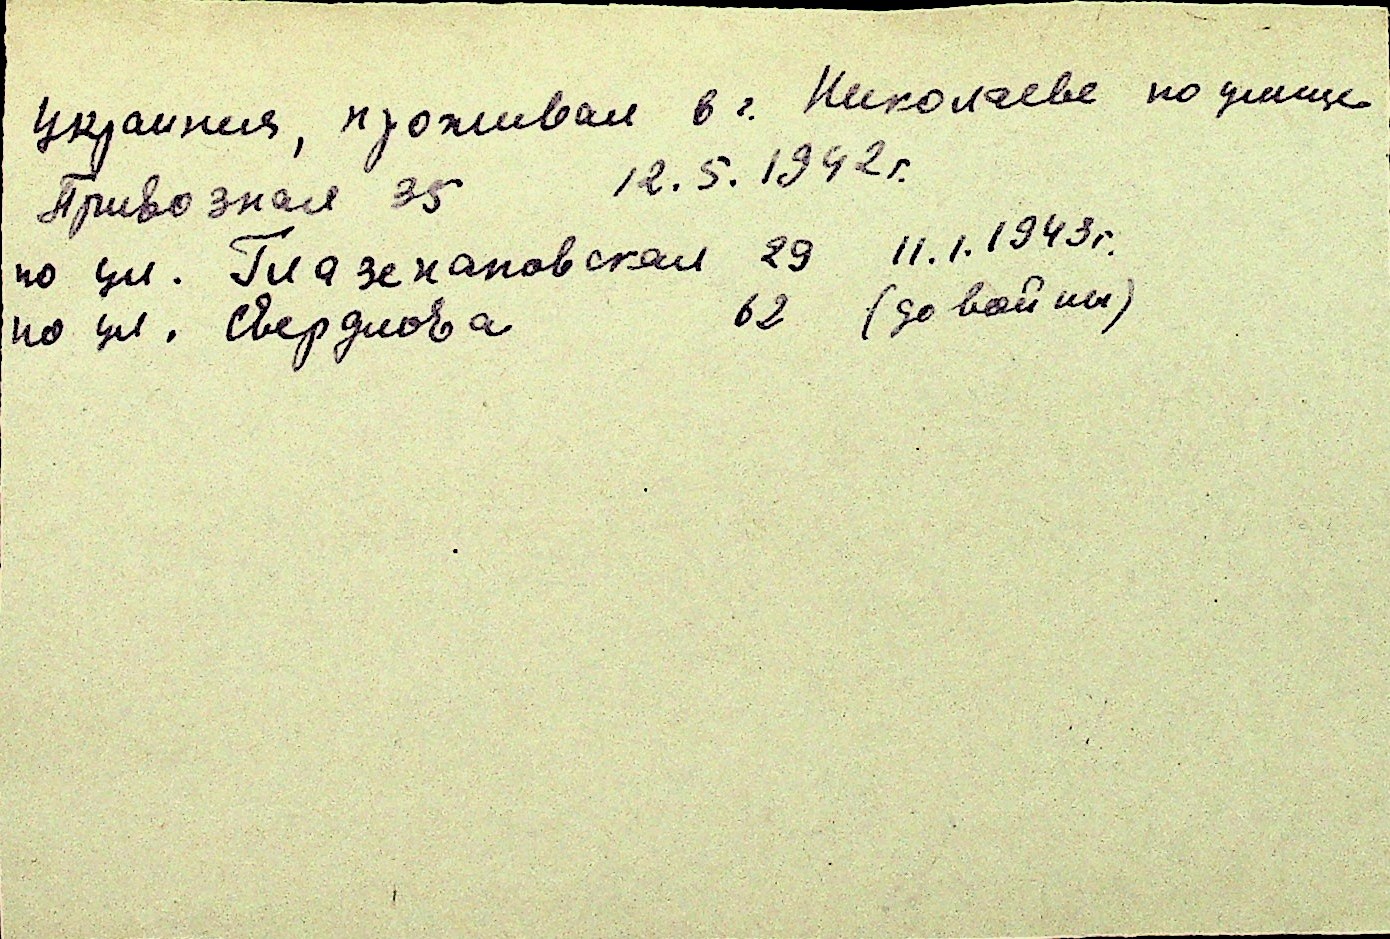 Украинец, проживал в г. Николаеве по улице
Привозная 35 12.5.1942г.
по ул. Глазенаповская 29 11.1.1943г.
по ул. Свердлова 62 (до войны)